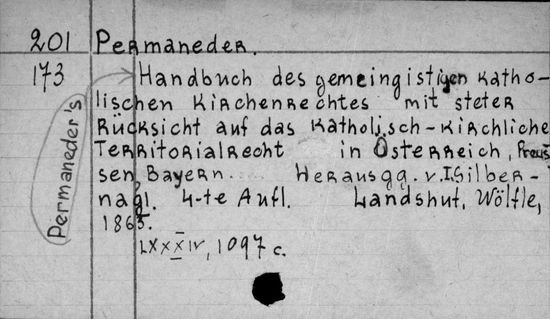 201 Permaneder.
173 Handbuch des gemeingistigen katho-
lischen Kirchenrechtes mit steter
Rücksicht auf das katholisch-kirchliche
Territorialrecht in Österreich, Preus
sen, Bayern..... Herausgg. v. I. Silber-
nagl. 4-te Aufl. Landshut, Wölfle,
1865.
LXXXIV, 1097 c.
Permaneder's